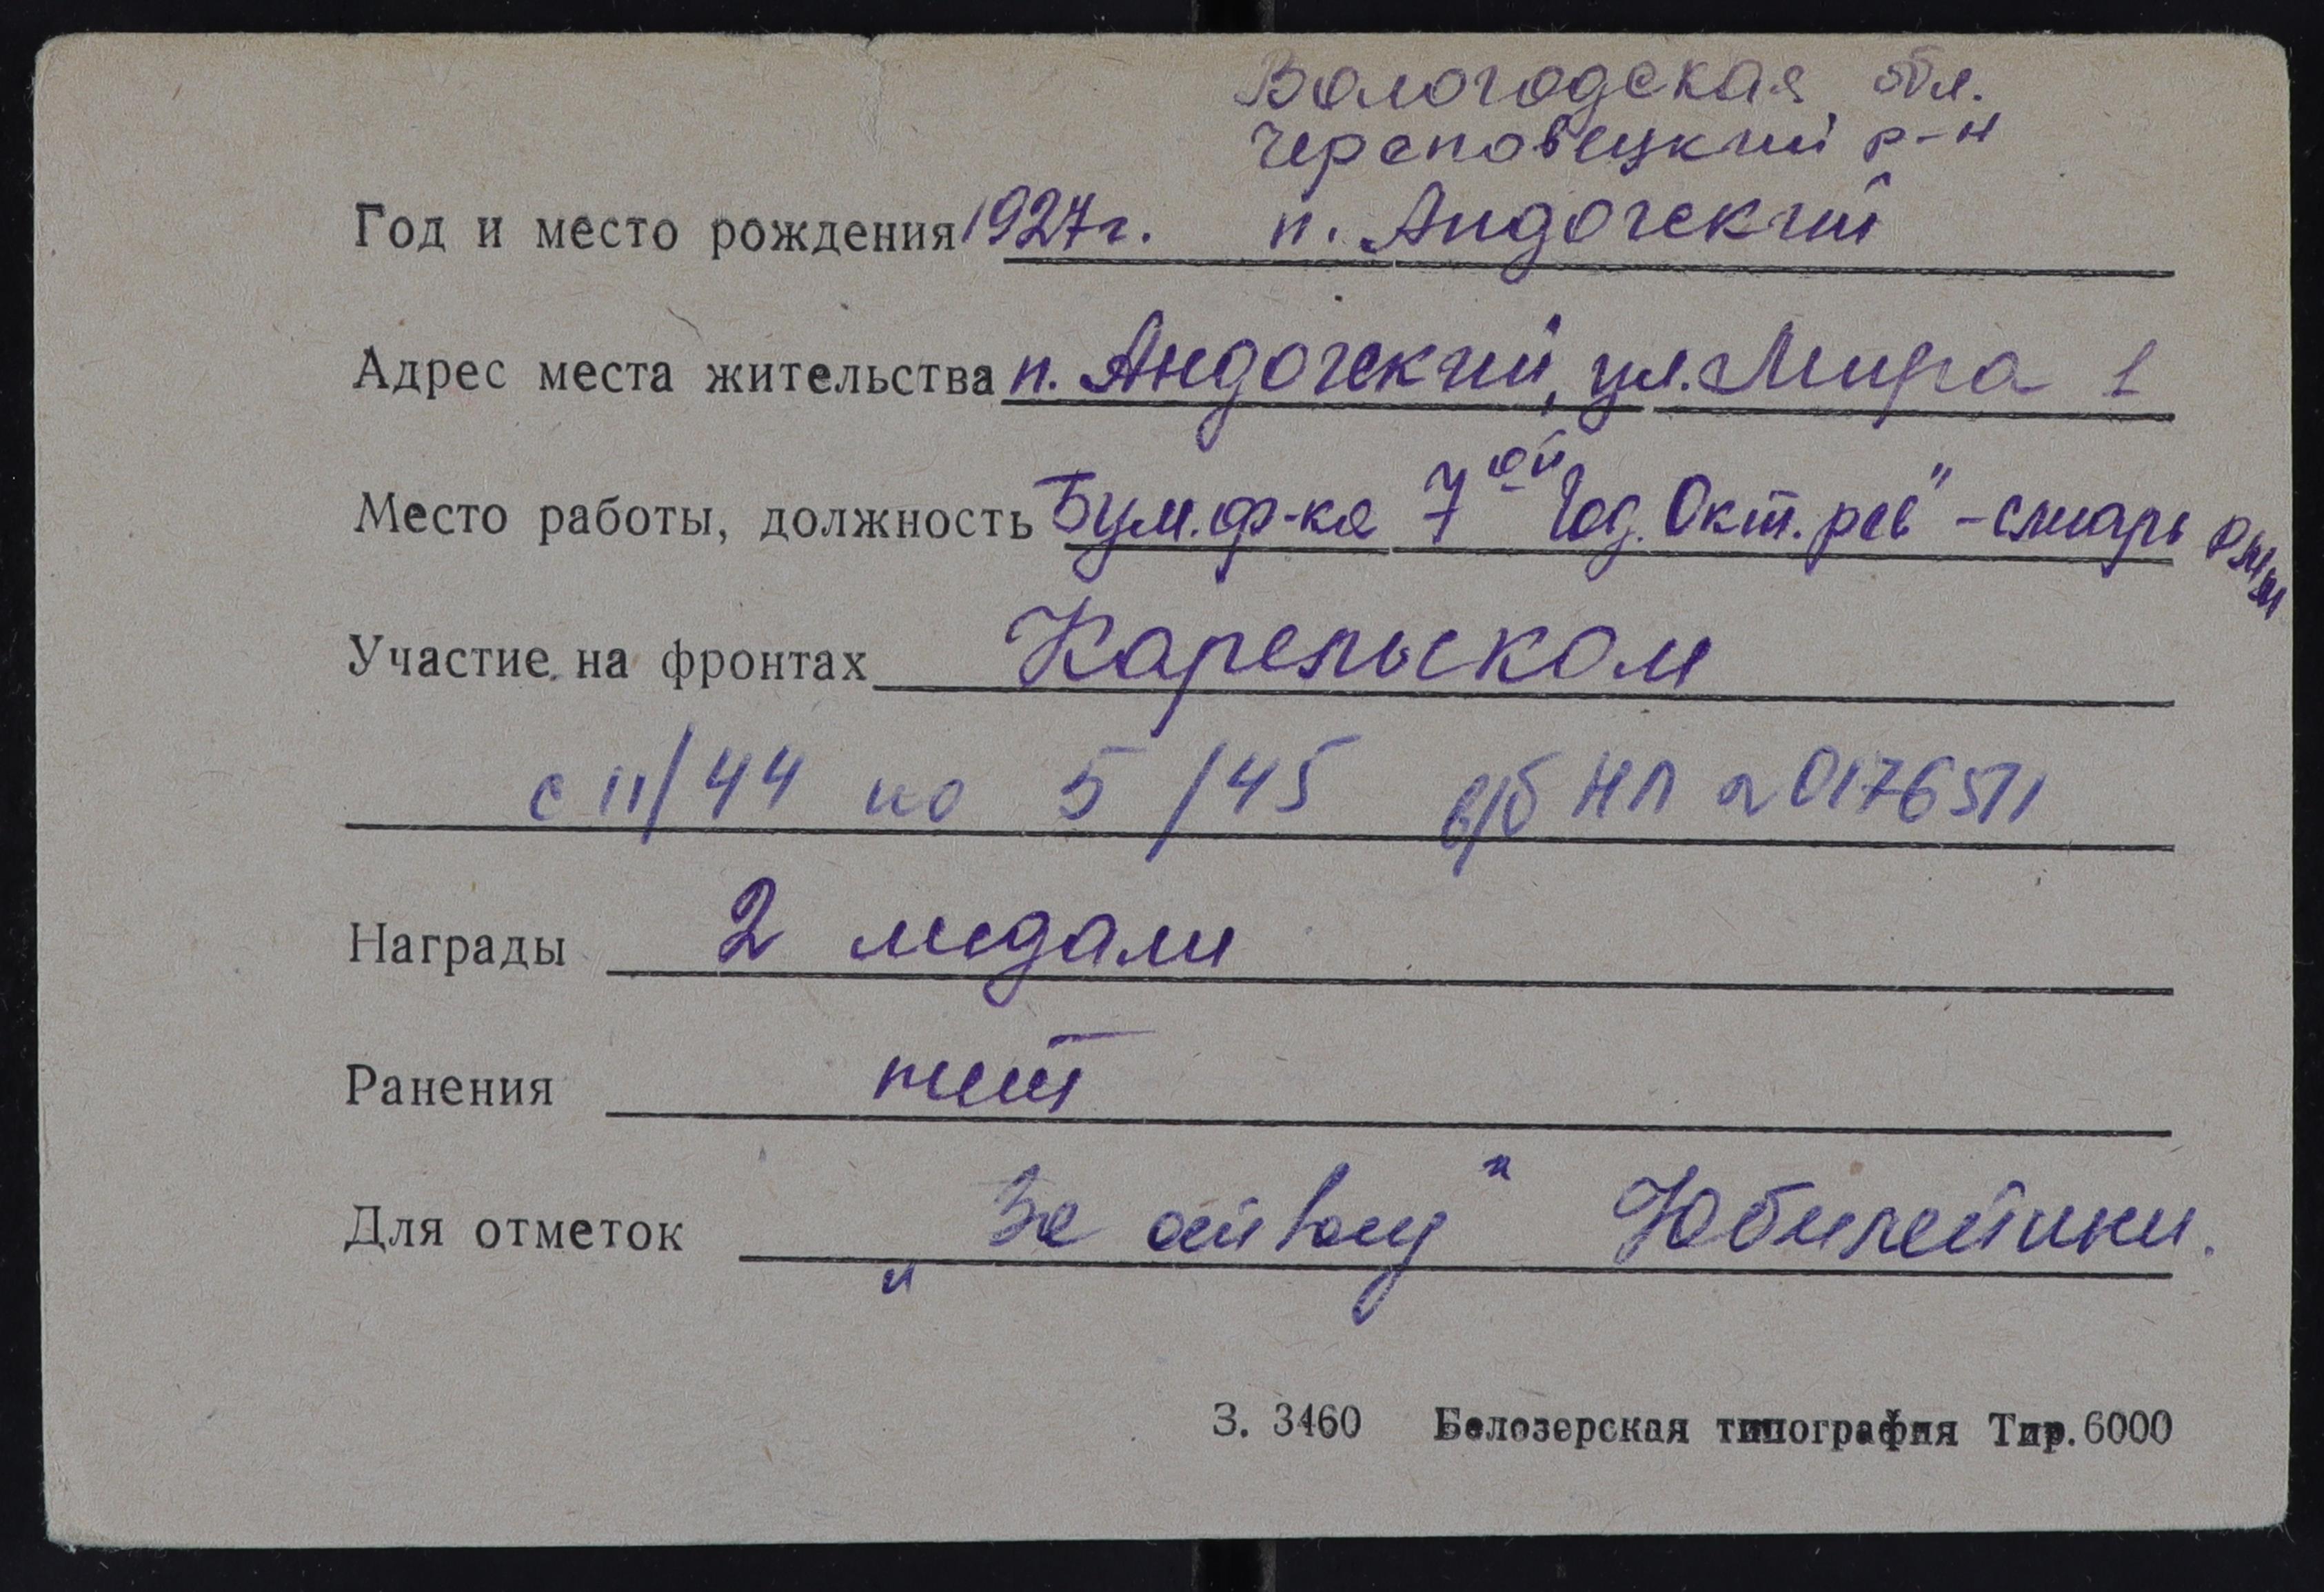 Вологодская обл.
Череповецкий р-н
Год и место рождения 1927г. п. Андогский
Адрес места жительства п. Андогский, ул. Мира 1
Место работы, должность Бум. ф-ка 7ой Год. Окт. рев" - слесарь
Участие на фронтах Карельском
с 11/44 по 5/45 в/б НП № 0176511
Награды 2 медали
Ранения нет
Для отметок "За" Юбилейики.
З. 3460 Белозерская типография Тир. 6000